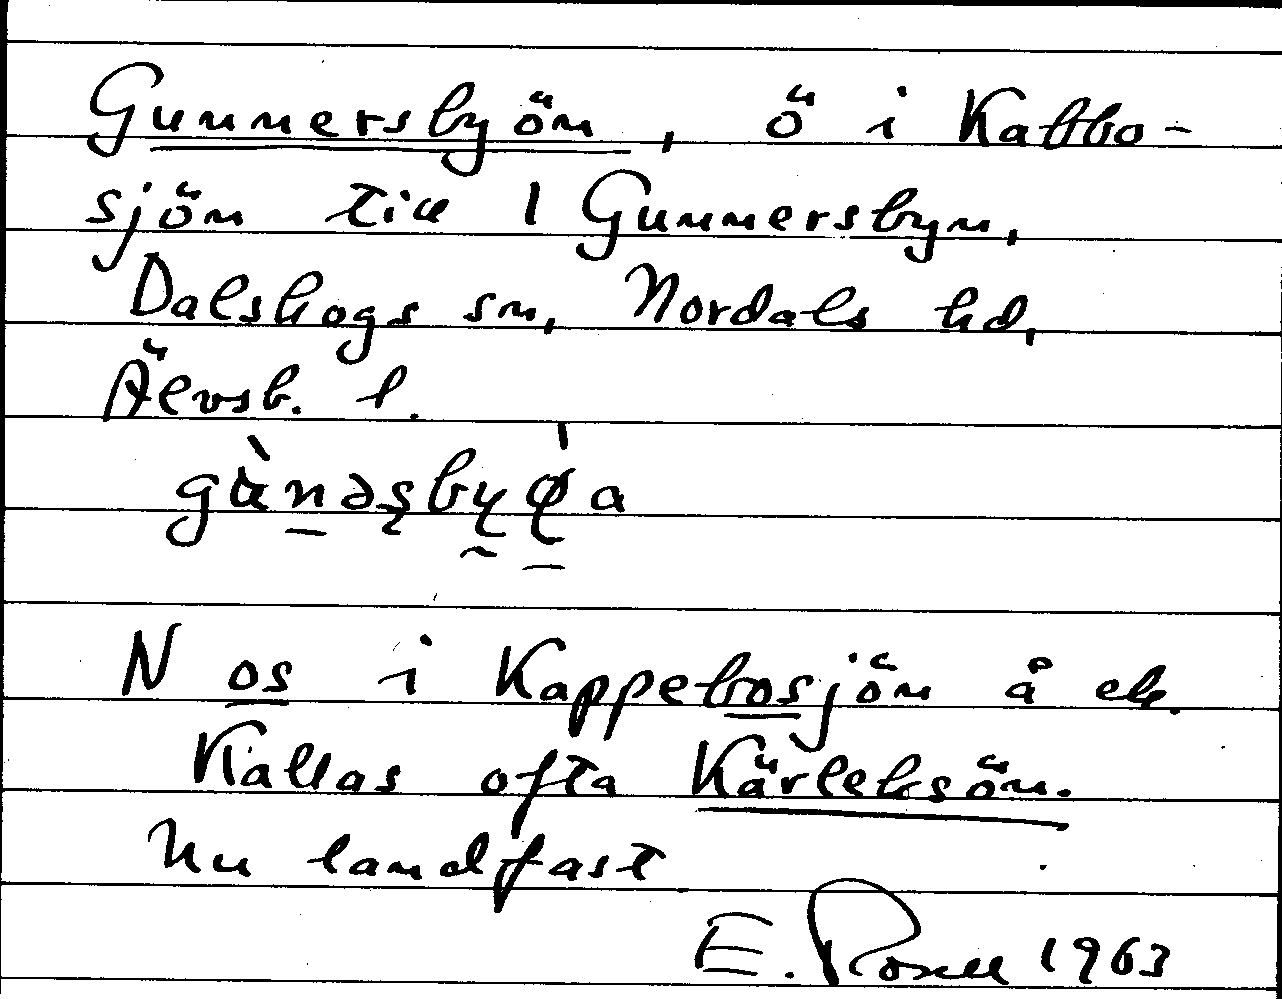 Gunnersbyön, ö i Kabbo-
sjön till 1 Gunnersbyn,
Dalskogs sn, Nordals hd,
Älvsb. l.
N os i Kappebosjön å ek.
Kallas ofta Kärleksön.
Nu landfast
E. Rosell 1963